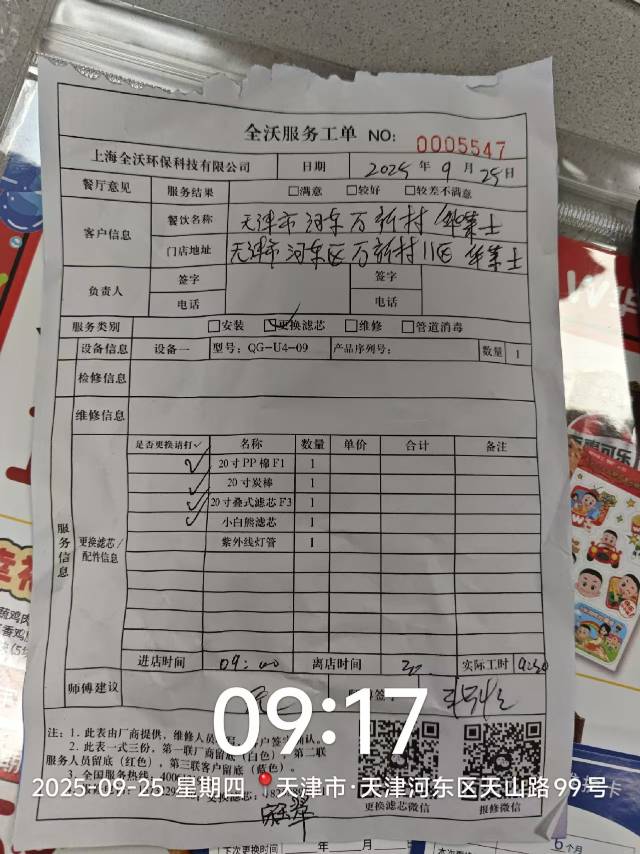 全沃服务工单 NO: 0005547
上海全沃环保科技有限公司 日期 2025年 9月 25日
餐厅意见 服务结果 □满意 □较好 □较差不满意
客户信息 餐饮名称 天津市河东万新村华莱士
门店地址 天津市河东区万新村11区 华莱士
负责人 签字 签字
电话 电话
服务类别 □安装 ☑更换滤芯 □维修 □管道消毒
设备信息 设备一 型号: QG-U4-09 产品序列号: 数量 1
检修信息
维修信息
服务信息
更换滤芯/配件信息
是否更换请打✓ 名称 数量 单价 合计 备注
✓ 20寸PP棉F1 1
✓ 20寸炭棒 1
✓ 20寸叠式滤芯F3 1
✓ 小白熊滤芯 1
紫外线灯管 1
进店时间 09:00 离店时间 实际工时
师傅建议
09:17
注: 1. 此表由厂商提供, 维修人员
2. 此表一式三份。第一联厂商留底(白色)。第二联
服务人员留底(红色), 第三联客户留底(蓝色)。
3. 全国服务热线: 400
2025-09-25 星期四 天津市·天津河东区天山路99号
更换滤芯微信 报修微信
下次更换时间 年 月
6个月